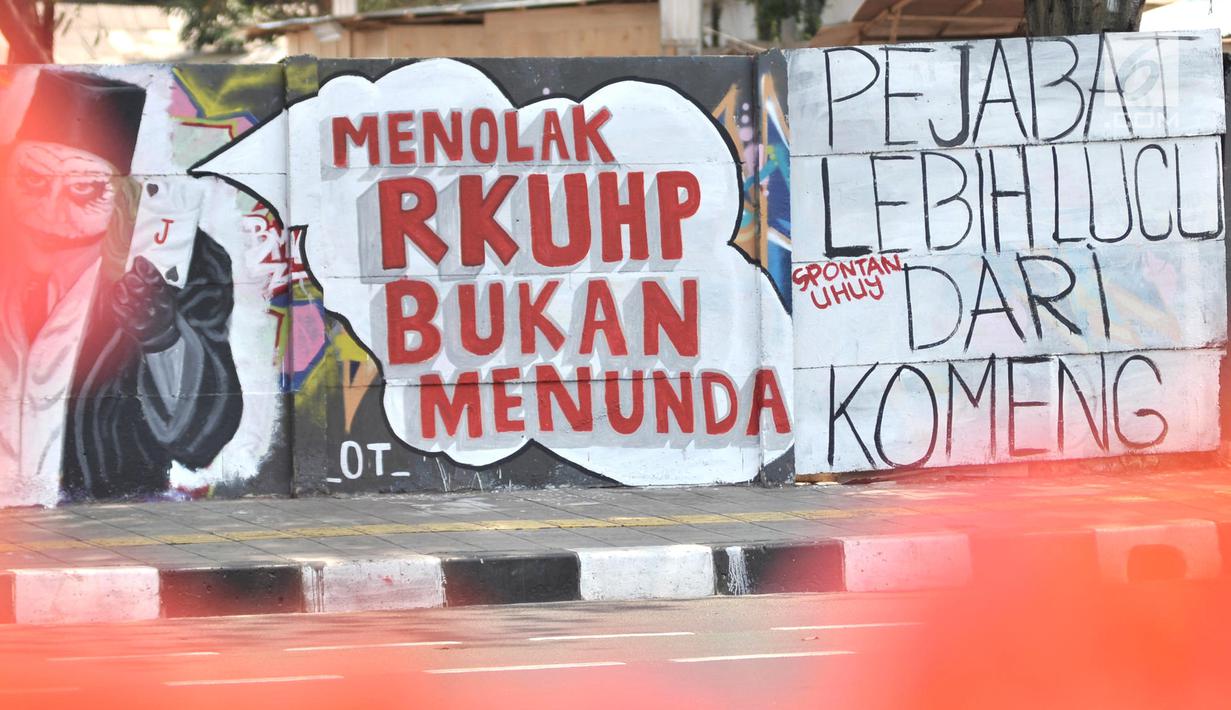 MENOLAK
RKUHP
BUKAN
MENUNDA
_OT_
J
PEJABAT
LEBIH LUCU
DARi
KOMENG
SPONTAN
UHUY
.COM